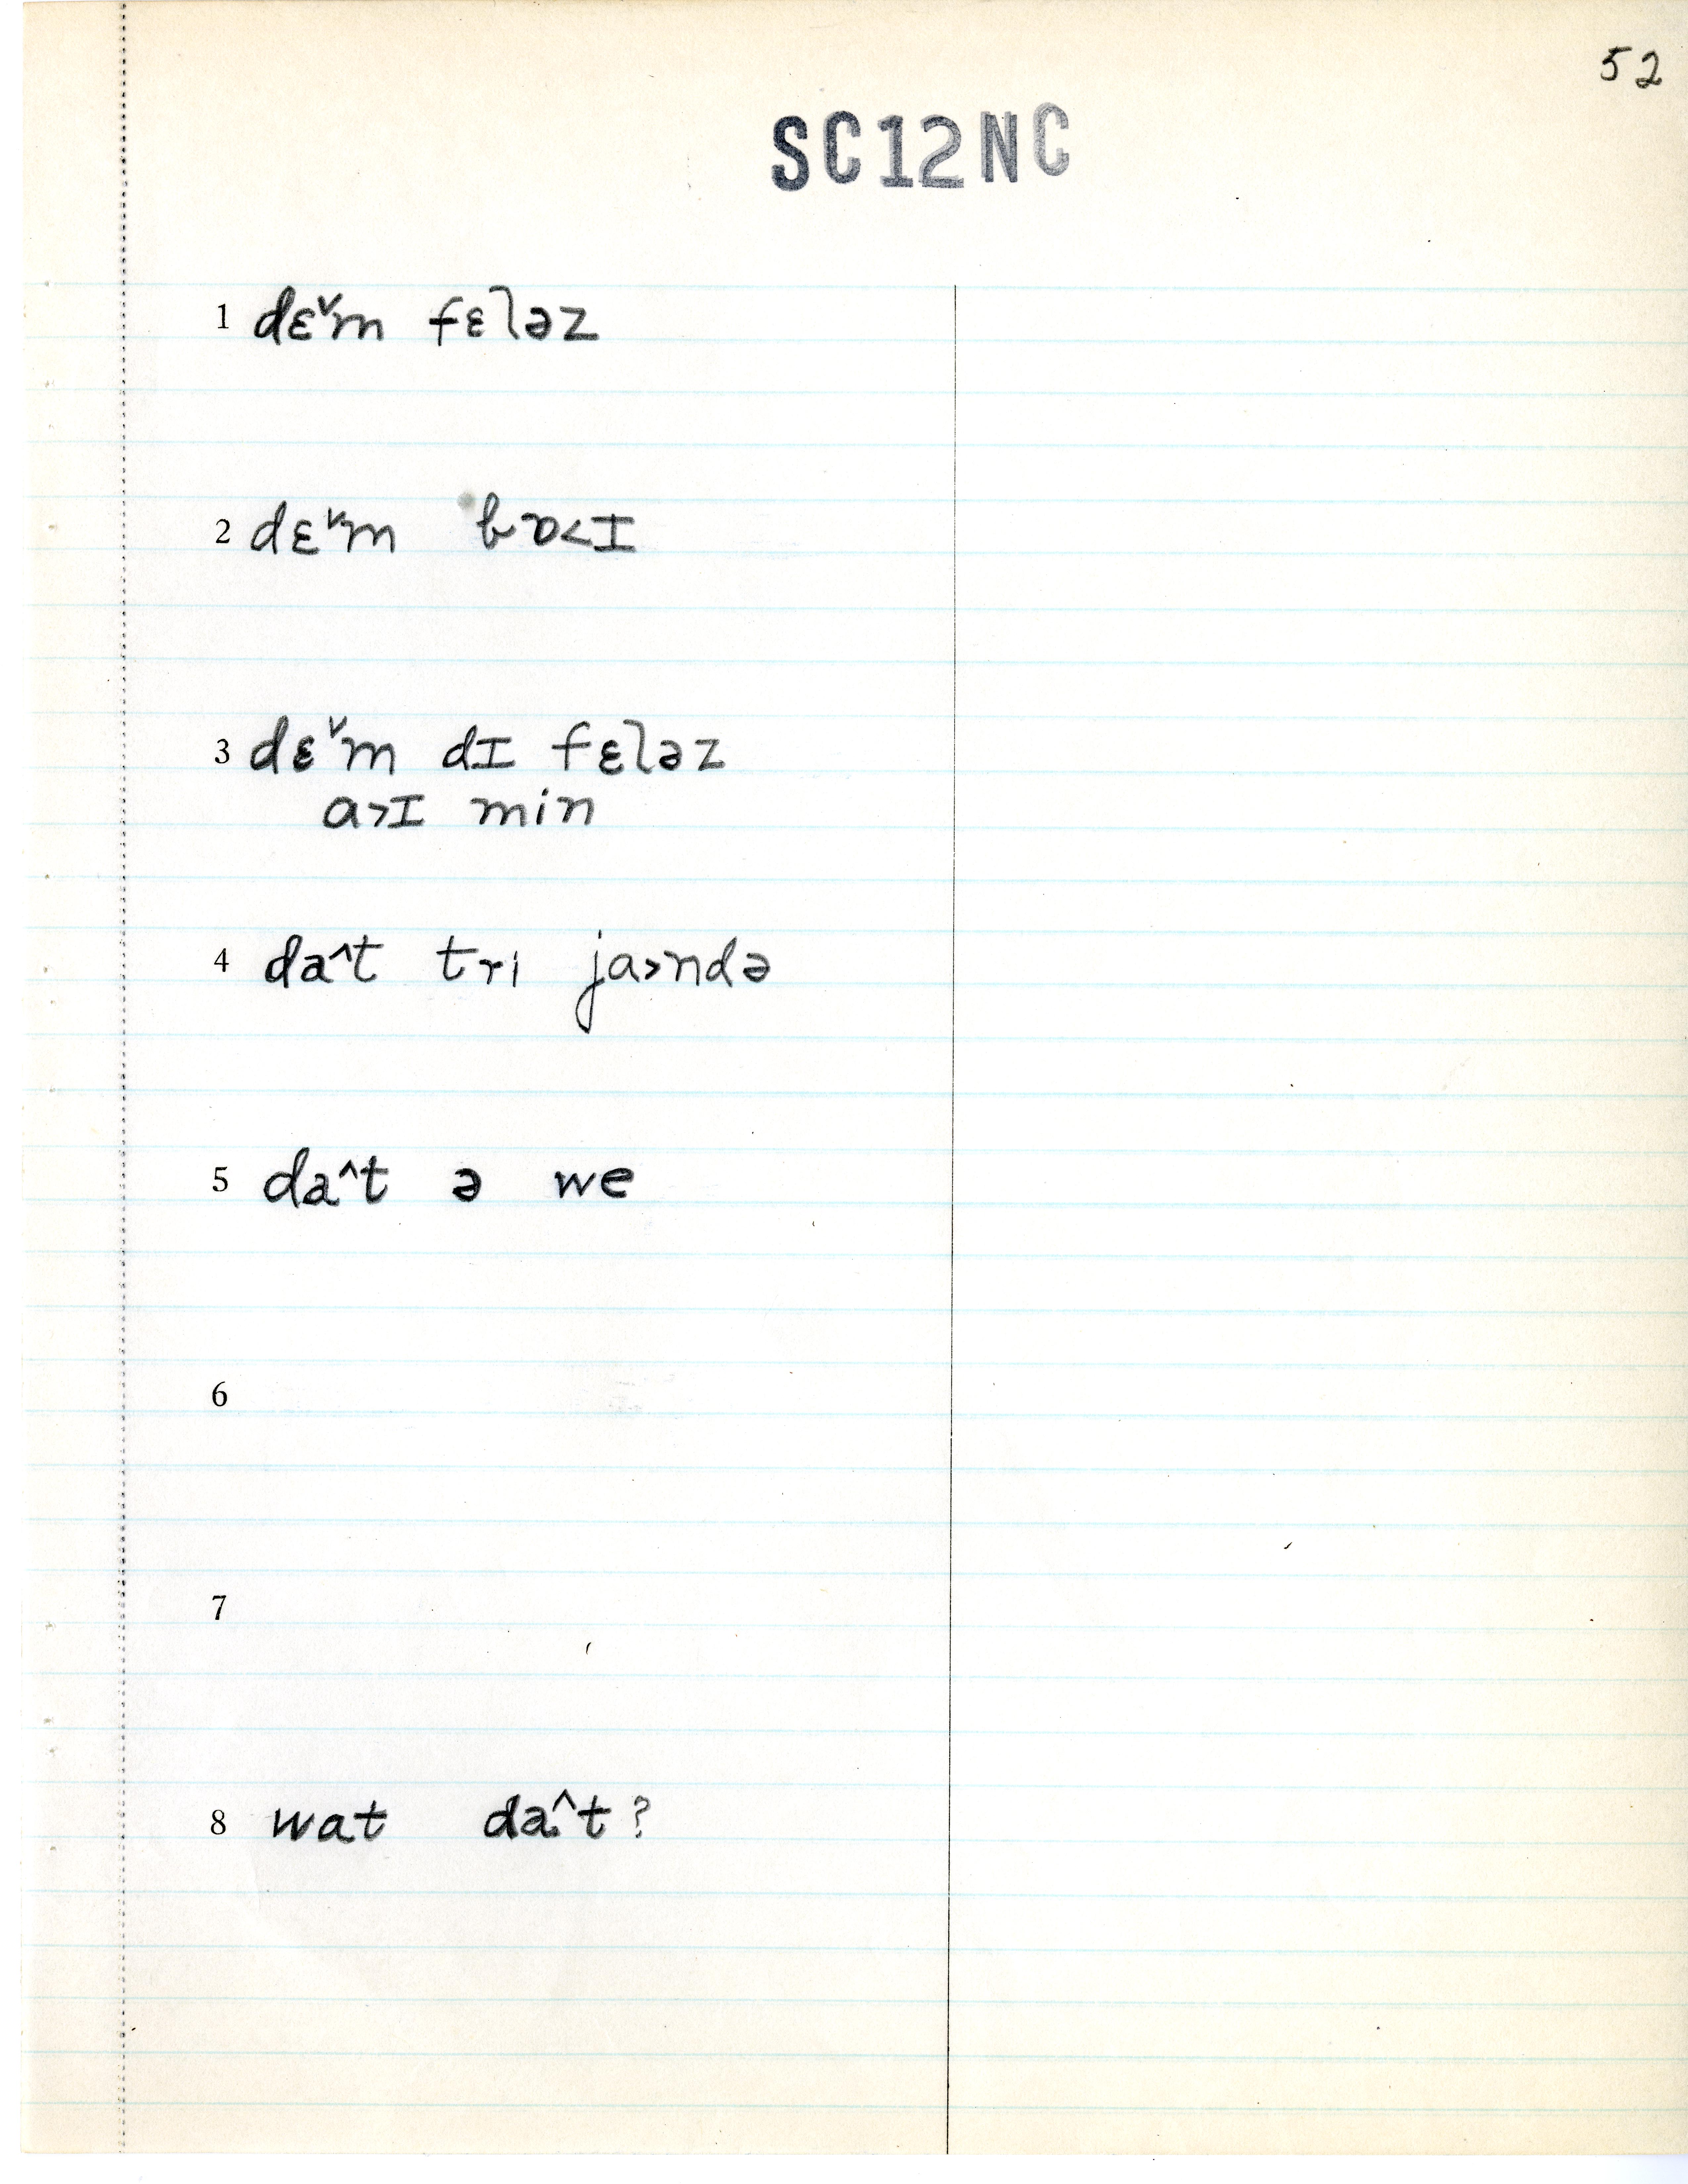 52
SC12NC
1 dɛ˅m fɛləz
2 dɛ˅m bɒ<I
3 dɛ˅m dI fɛləz
a>I min
4 da^t tri ja>ndə
5 da^t ə we
6
7
8 wat da^t?